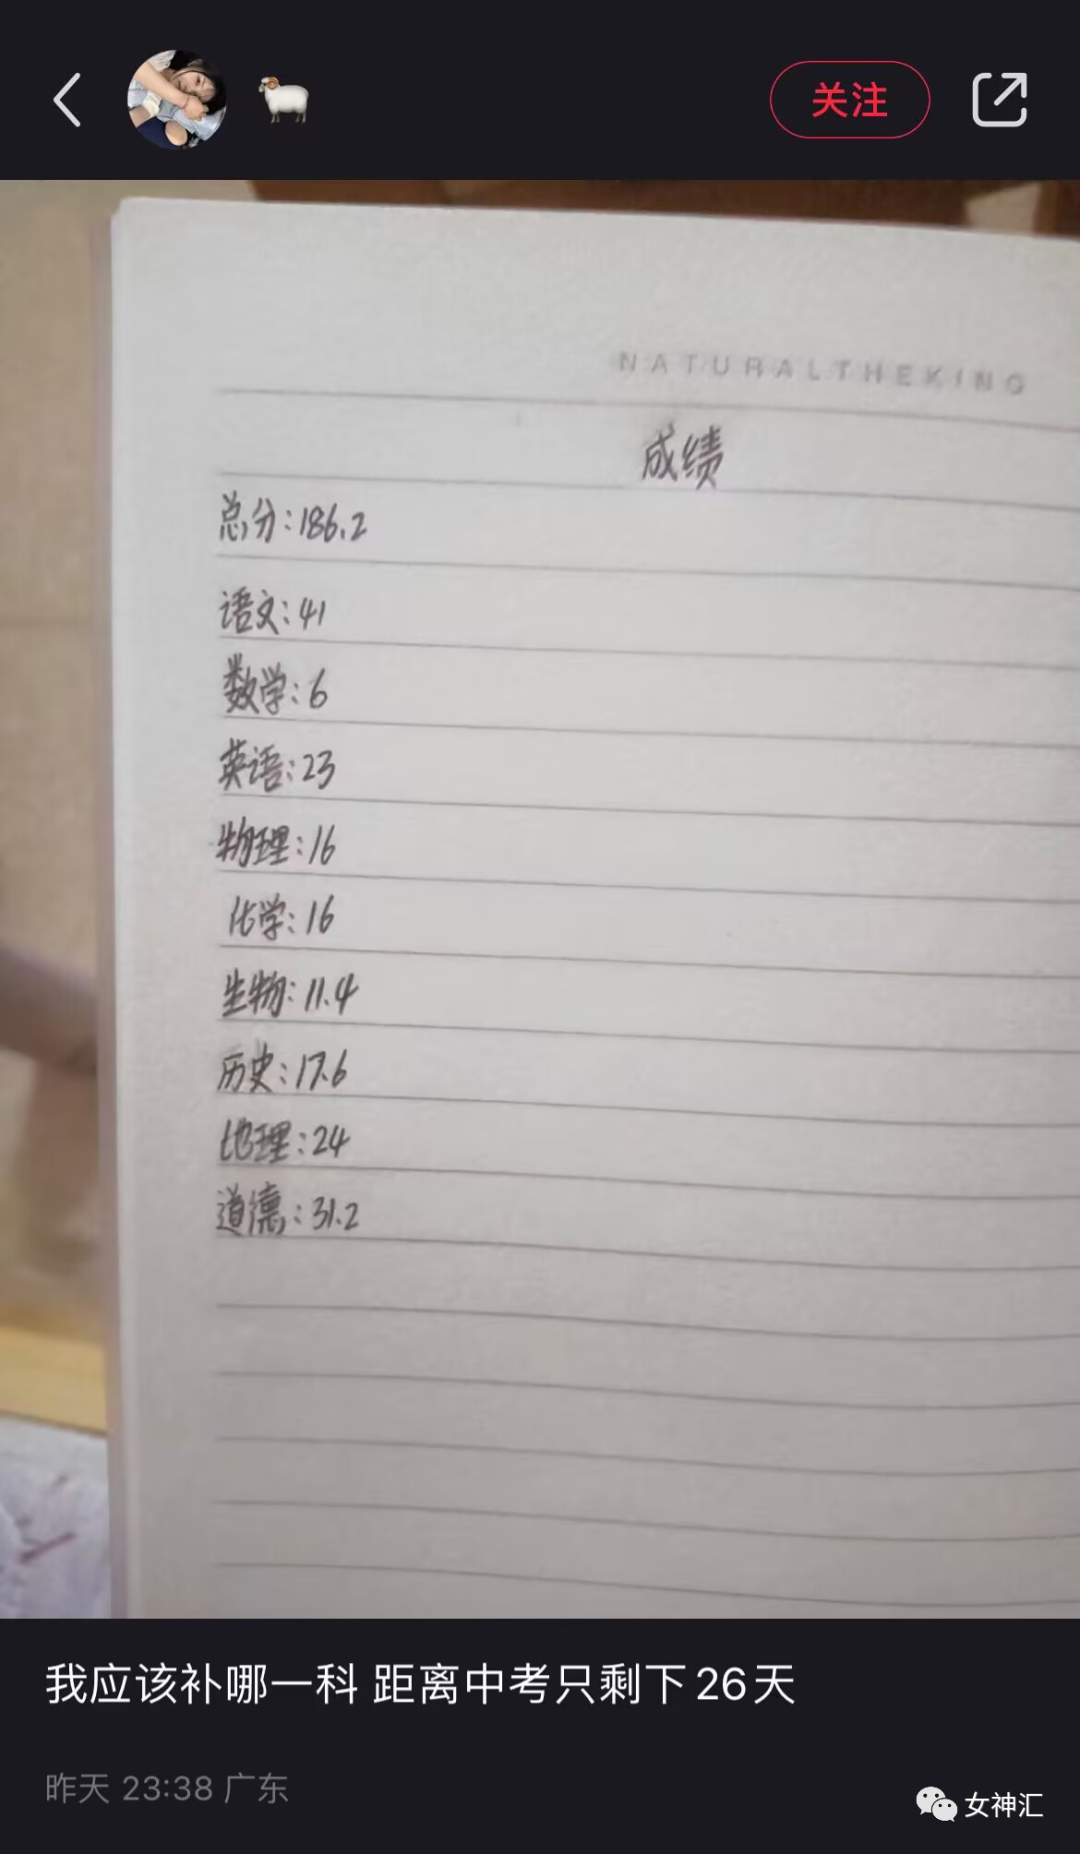 关注
NATURALTHEKING
成绩
总分:186.2
语文:41
数学:6
英语:23
物理:16
化学:16
生物:11.4
历史:17.6
地理:24
道德:31.2
我应该补哪一科 距离中考只剩下26天
昨天 23:38 广东
女神汇